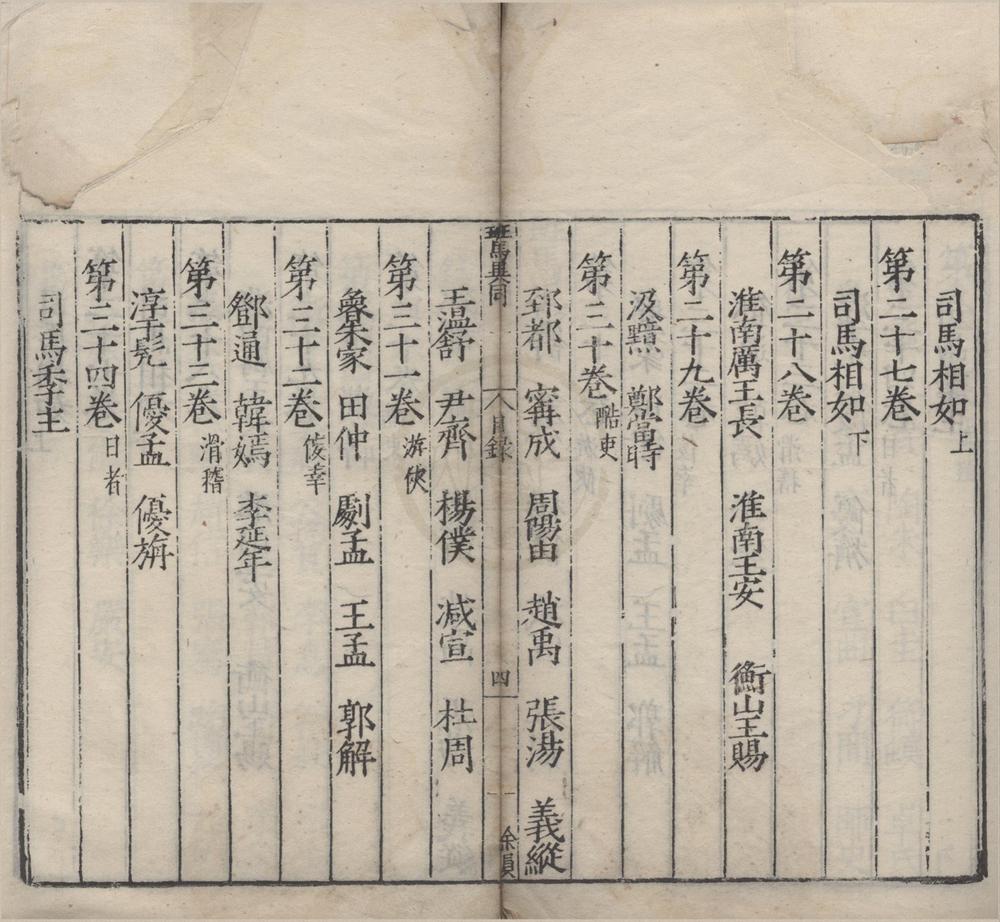 司馬相如上
第二十七卷
司馬相如下
第二十八卷
淮南厲王長 淮南王安 衡山王賜
第二十九卷
汲黯 鄭當時
第三十卷酷吏
郅都 甯成 周陽由 趙禹 張湯 義縱
班馬異同 目録 四 余員
王溫舒 尹齊 楊僕 減宣 杜周
第三十一卷游俠
魯朱家 田仲 劇孟 王孟 郭解
第三十二卷佞幸
鄧通 韓嫣 李延年
第三十三卷滑稽
淳于髠 優孟 優旃
第三十四卷日者
司馬季主